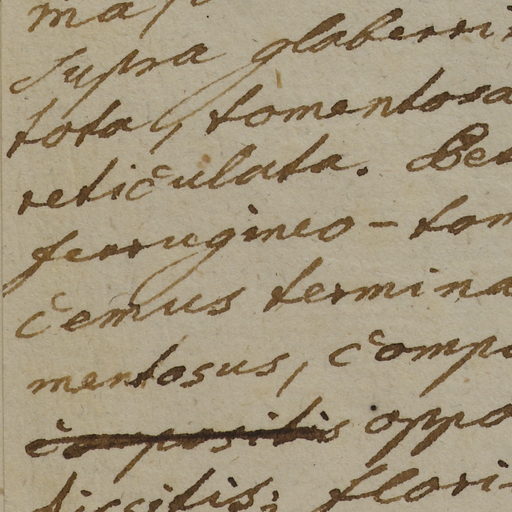 supra glaberri
tota, tomentosa
reticulata. Pet
ferrugineo-tom
cemus termina
mentosus, comp
compositis oppo
sissitis; flori